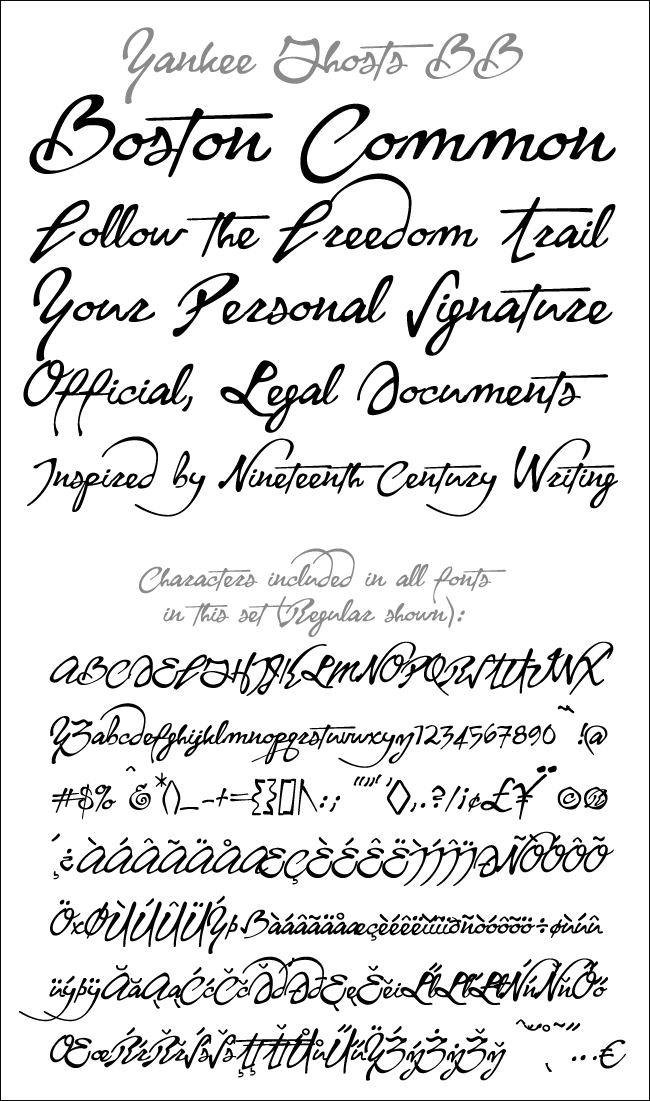 Yankee Ghosts BB
Boston Common
Follow the Freedom Trail
Your Personal Signature
Official, Legal Documents
Inspired by Nineteenth Century Writing
Characters included in all fonts
in this set (Regular shown):
ABCDEFGHIJKLMNOPQRSTUVWX
YZabcdefghijklmnopqrstuvwxyz1234567890~!@
#$%^&*()_-+={}[]|\:;"“”‘’'<>,.?/¡¢£¥¨©®
´¸¿ÀÁÂÃÄÅÆÇÈÉÊËÌÍÎÏÐÑÒÓÔÕ
ÖxØÙÚÛÜÝÞßàáâãäåæçèéêëìíîïðñòóôõö÷øùúû
üýþÿĂăĄąĆćČčĎďĐđĘęĚěıŁłŃńŇňŐő
ŒœŔŕŘřŚśŠšŢţŤťŮůŰűŸŹźŻżŽž